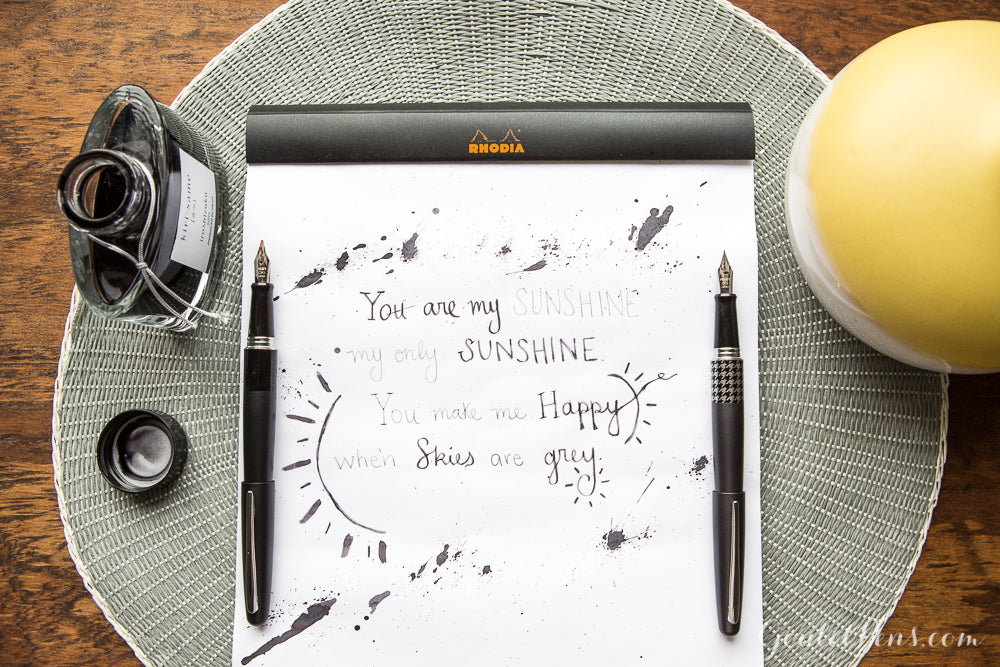 RHODIA
kiri-same
iroshizuku
You are my SUNSHINE
my only SUNSHINE
You make me Happy
when Skies are grey.